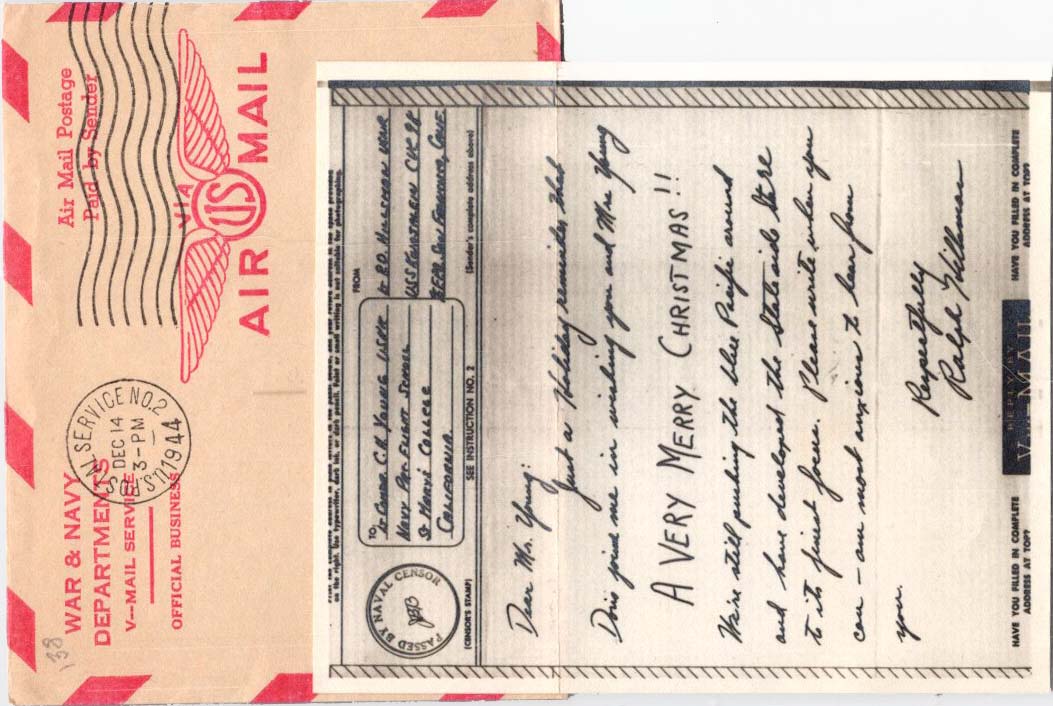 WAR & NAVY
DEPARTMENTS
V--MAIL SERVICE
OFFICIAL BUSINESS
138
U.S. POSTAL SERVICE NO.2
DEC 14
3-PM
1944
VIA
US
AIR MAIL
Air Mail Postage
Paid by Sender
on the right. Use typewriter, dark ink, or dark pencil. Faint or small writing is not suitable for photographing.
TO
Lt Comdr. C.H. Young USNR
Navy Pre-Flight School
St Mary's College
California
FROM
Lt R.O. Hillman USNR
USS
FPO San Francisco, Calif
PASSED BY NAVAL CENSOR
(CENSOR'S STAMP)
SEE INSTRUCTION NO. 2
(Sender's complete address above)
Dear Mr. Young:
Just a Holiday reminder that
Doris joined me in wishing you and Mrs Young
A VERY MERRY CHRISTMAS!!
We're still pushing the blue Pacific around
and have developed the Stateside
to its finest focus. Please write when you
can - am most anxious to hear from
you.
Respectfully
Ralph Hillman
HAVE YOU FILLED IN COMPLETE
ADDRESS AT TOP?
REPLY BY
V···-MAIL
HAVE YOU FILLED IN COMPLETE
ADDRESS AT TOP?